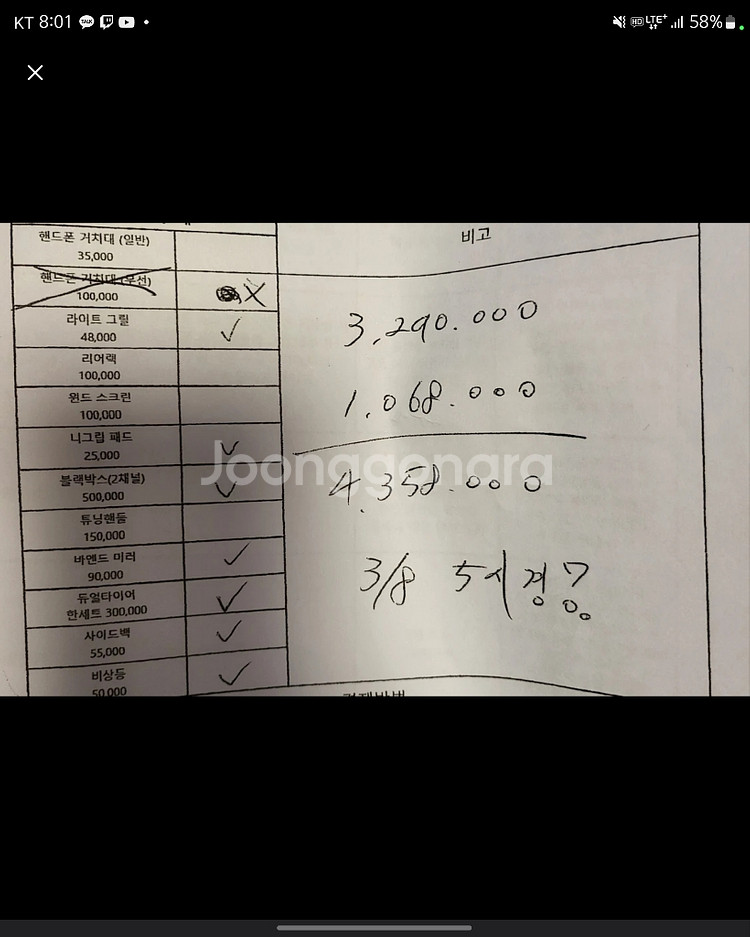 KT 8:01
HD LTE+ 58%
핸드폰 거치대 (일반)
35,000
비고
핸드폰 거치대 (무선)
100,000
X
라이트 그릴
48,000
3,290.000
리어랙
100,000
윈드 스크린
100,000
1.068.000
니그립 패드
25,000
Joonggonara
블랙박스(2채널)
500,000
4.358.000
튜닝핸들
150,000
바앤드 미러
90,000
3/8 5시경?
듀얼타이어
한세트 300,000
사이드백
55,000
비상등
50,000
결제방법